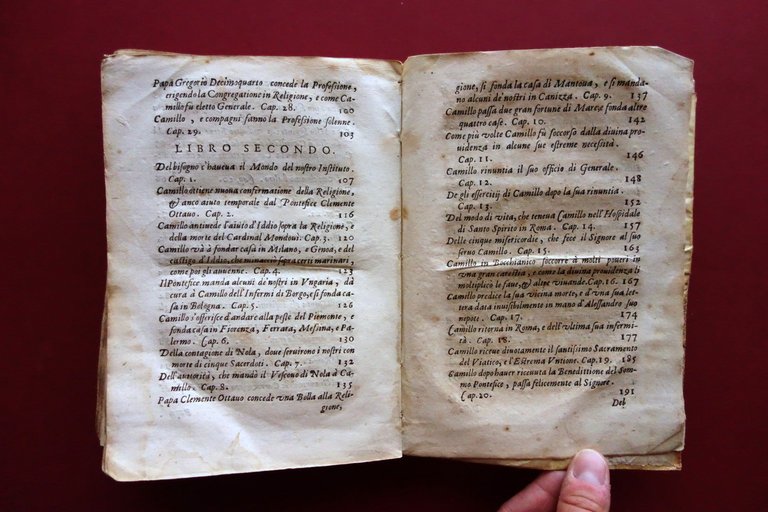 Papa Gregorio Decimoquarto concede la Professione,
erigendo la Congregatione in Religione, e come Ca-
millo fu eletto Generale. Cap. 28. 100
Camillo, e compagni fanno la Professione solenne.
Cap. 29. 103
LIBRO SECONDO.
Del bisogno c'haueua il Mondo del nostro Instituto.
Cap. 1. 107
Camillo ottiene nuoua confermatione della Religione,
& anco aiuto temporale dal Pontefice Clemente
Ottauo. Cap. 2. 116
Camillo antiuede l'aiuto d'Iddio sopra la Religione, e
della morte del Cardinal Mondouì. Cap. 3. 120
Camillo và à fondar casa in Milano, e Genoa, e del
castigo d'Iddio, che minacciò sopra certi marinari,
come poi gli auuenne. Cap. 4. 123
Il Pontefice manda alcuni de'nostri in Vngaria, dà
cura à Camillo dell'Infermi di Borgo, e si fonda ca-
sa in Bologna. Cap. 5. 126
Camillo s'offerisce d'andare alla peste del Piemonte, e
fonda casa in Fiorenza, Ferrara, Messina, e Pa-
lermo. Cap. 6. 130
Della contagione di Nola, doue seruirono i nostri con
morte di cinque Sacerdoti. Cap. 7. 132
Dell'autorità, che mandò il Vescouo di Nola à Ca-
millo. Cap. 8. 135
Papa Clemente Ottauo concede vna Bolla alla Reli-
gione,
gione, si fonda la casa di Mantoua, e si manda-
no alcuni de'nostri in Canizza. Cap. 9. 137
Camillo passa due gran fortune di Mare, e fonda altre
quattro case. Cap. 10. 142
Come più volte Camillo fù soccorso dalla diuina pro-
uidenza in alcune sue estreme necessità.
Cap. 11. 146
Camillo rinuntia il suo officio di Generale.
Cap. 12. 148
De gli essercitij di Camillo dopo la sua rinuntia.
Cap. 13. 152
Del modo di vita, che teneua Camillo nell'Hospidale
di Santo Spirito in Roma. Cap. 14. 157
Delle cinque misericordie, che fece il Signore al suo
seruo Camillo. Cap. 15. 163
Camillo in Bocchianico soccorre à molti poueri in
vna gran carestia, e come la diuina prouidenza li
moltiplicò le faue, & altre viuande. Cap. 16. 167
Camillo predice la sua vicina morte, e d'vna sua let-
tera data inuisibilmente in mano d'Alessandro suo
nepote. Cap. 17. 174
Camillo ritorna in Roma, e dell'vltima sua infermi-
tà. Cap. 18. 177
Camillo riceue diuotamente il santissimo Sacramento
del Viatico, e l'Estrema Vntione. Cap. 19. 185
Camillo dopo hauer riceuuta la Benedittione del Som-
mo Pontefice, passa felicemente al Signore.
Cap. 20. 191
Del